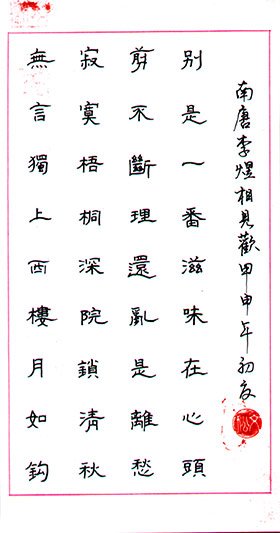 無言獨上西樓月如鈎
寂寞梧桐深院鎖清秋
剪不斷理還亂是離愁
别是一番滋味在心頭
南唐李煜相見歡甲申年初夏